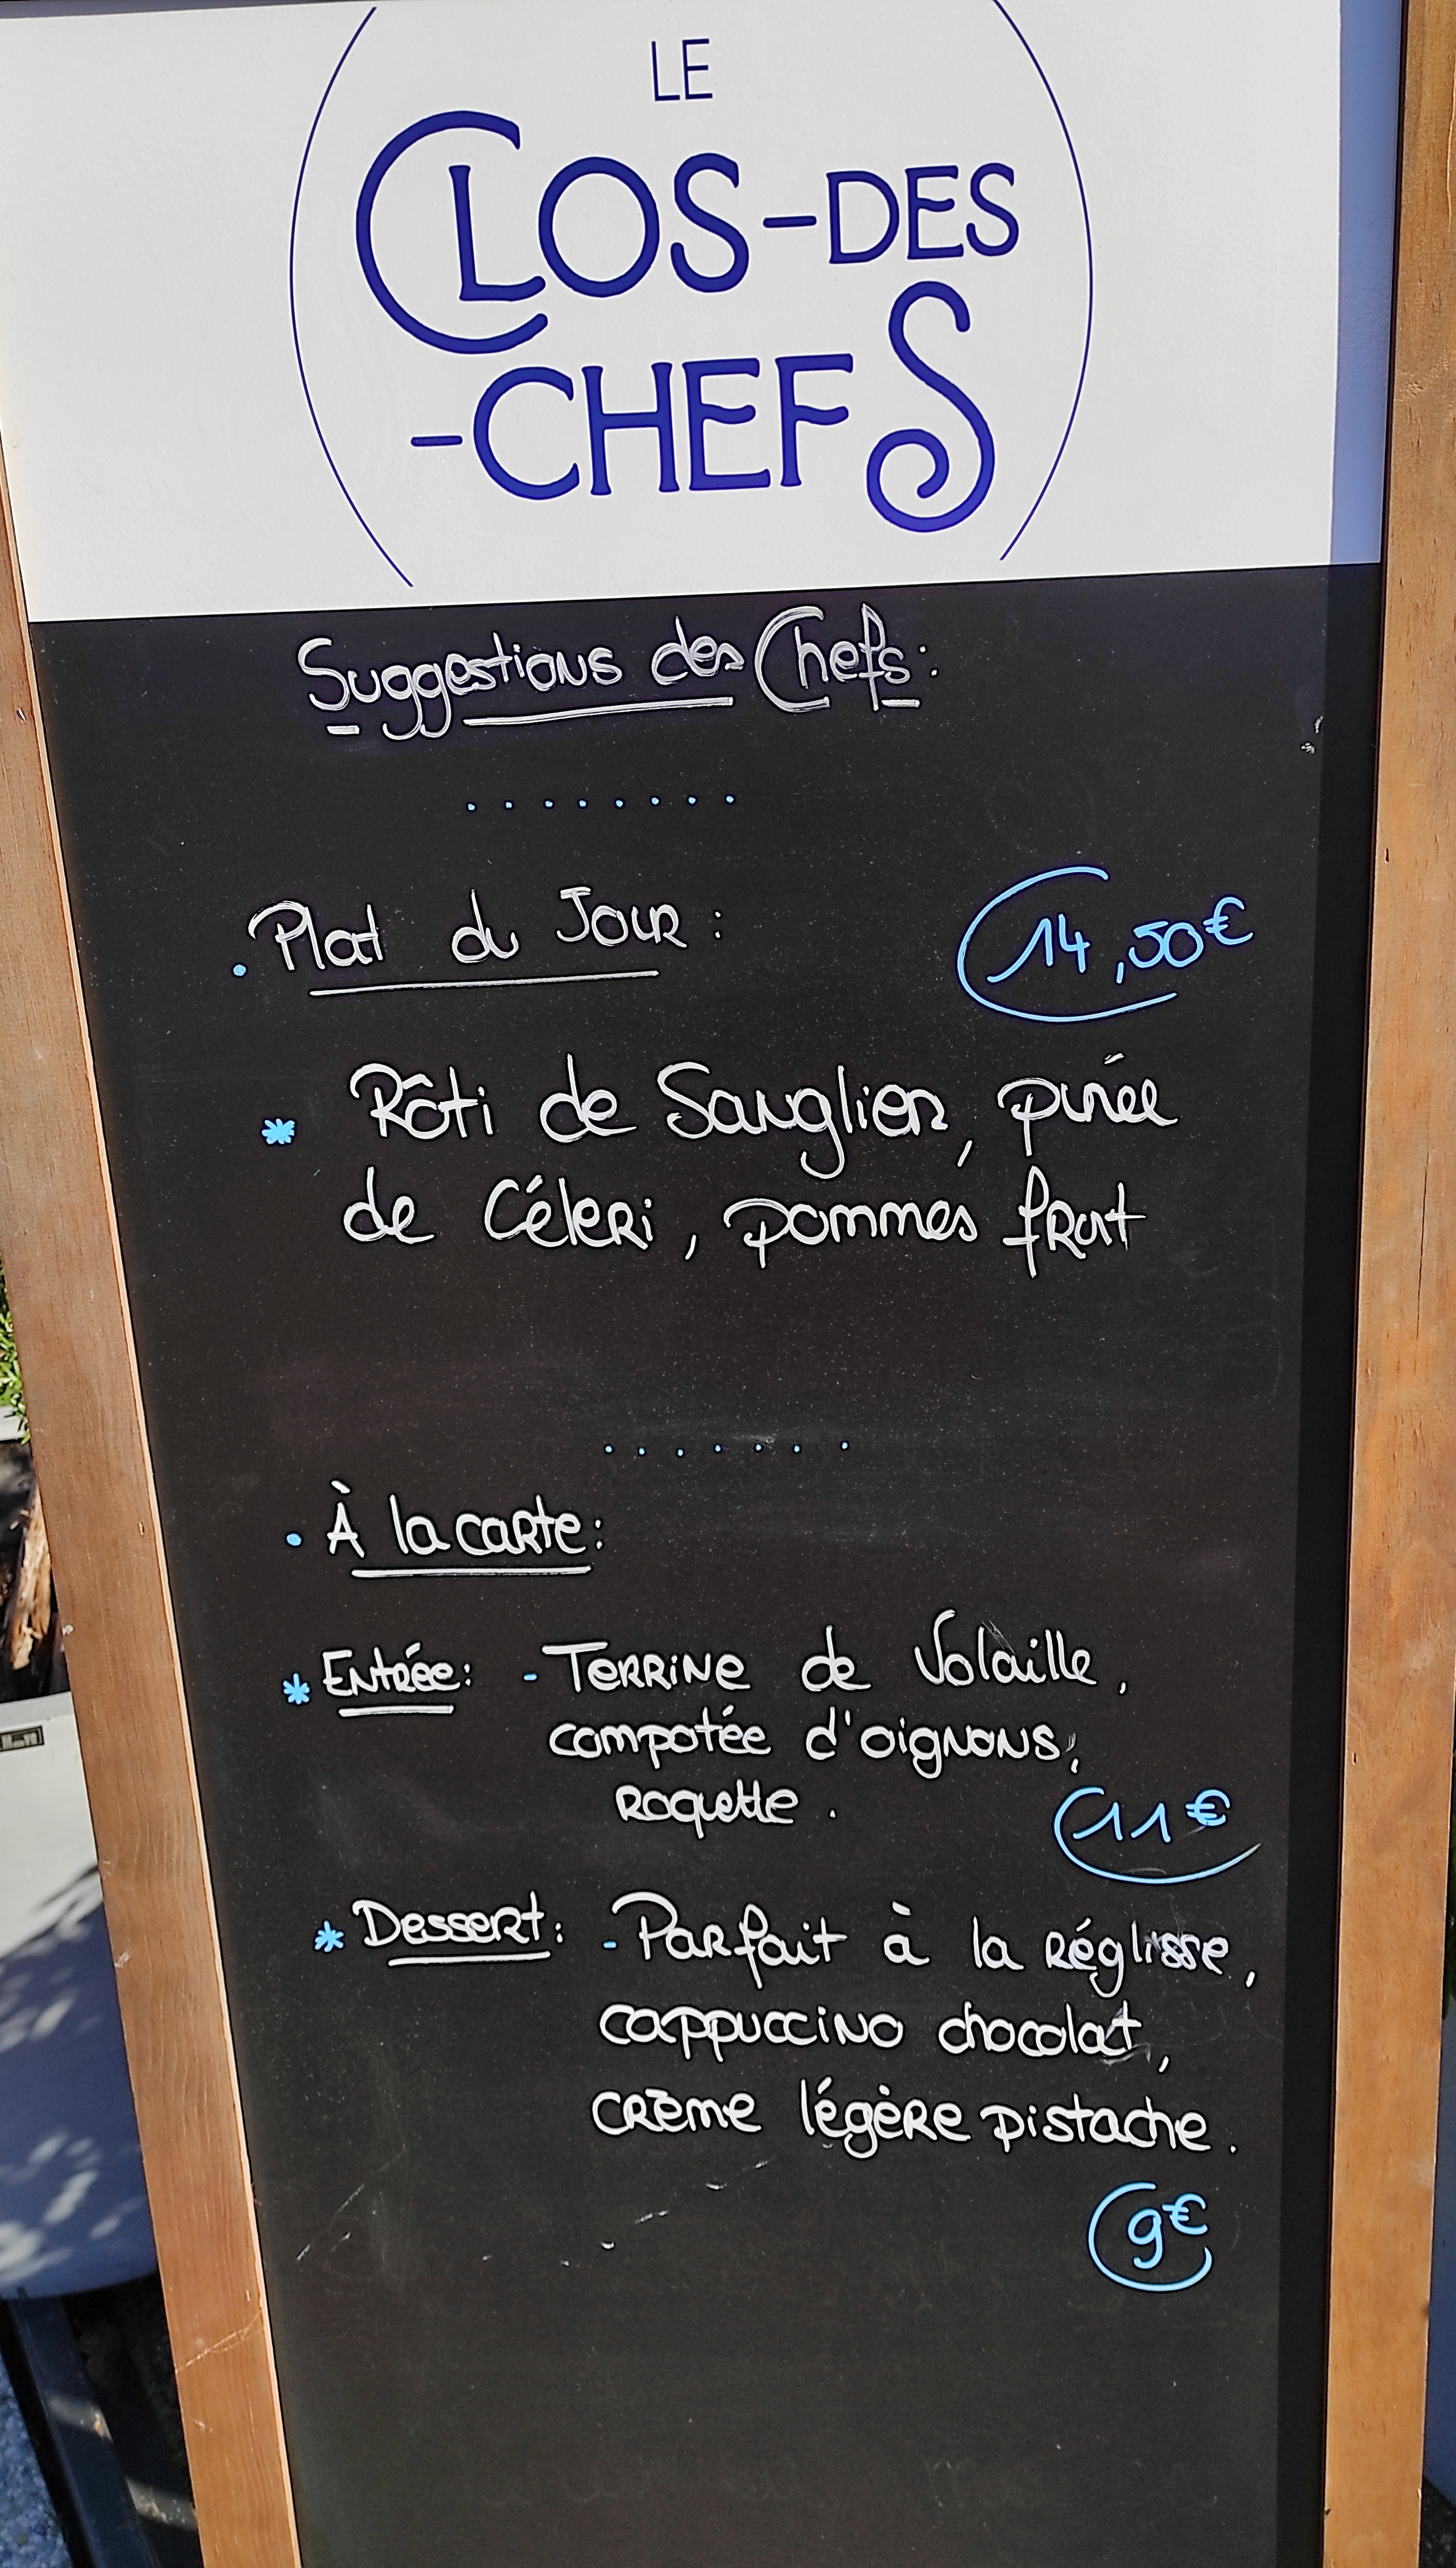 LE
CLOS-DES
-CHEFS
Suggestions des Chefs:
. Plat du Jour : 14,50€
* Rôti de Sanglier, purée
de Céleri, pommes fruit
. À la carte:
* Entrée: - Terrine de Volaille,
compotée d'oignons,
roquette. 11€
* Dessert: - Parfait à la réglisse,
cappuccino chocolat,
crème légère pistache.
9€